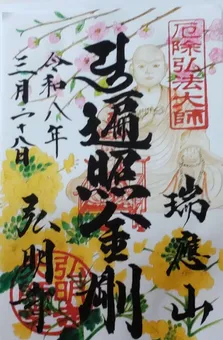 厄除弘法大師
瑞應山
遍照金剛
令和八年
三月二十八日
弘明寺
弘明寺